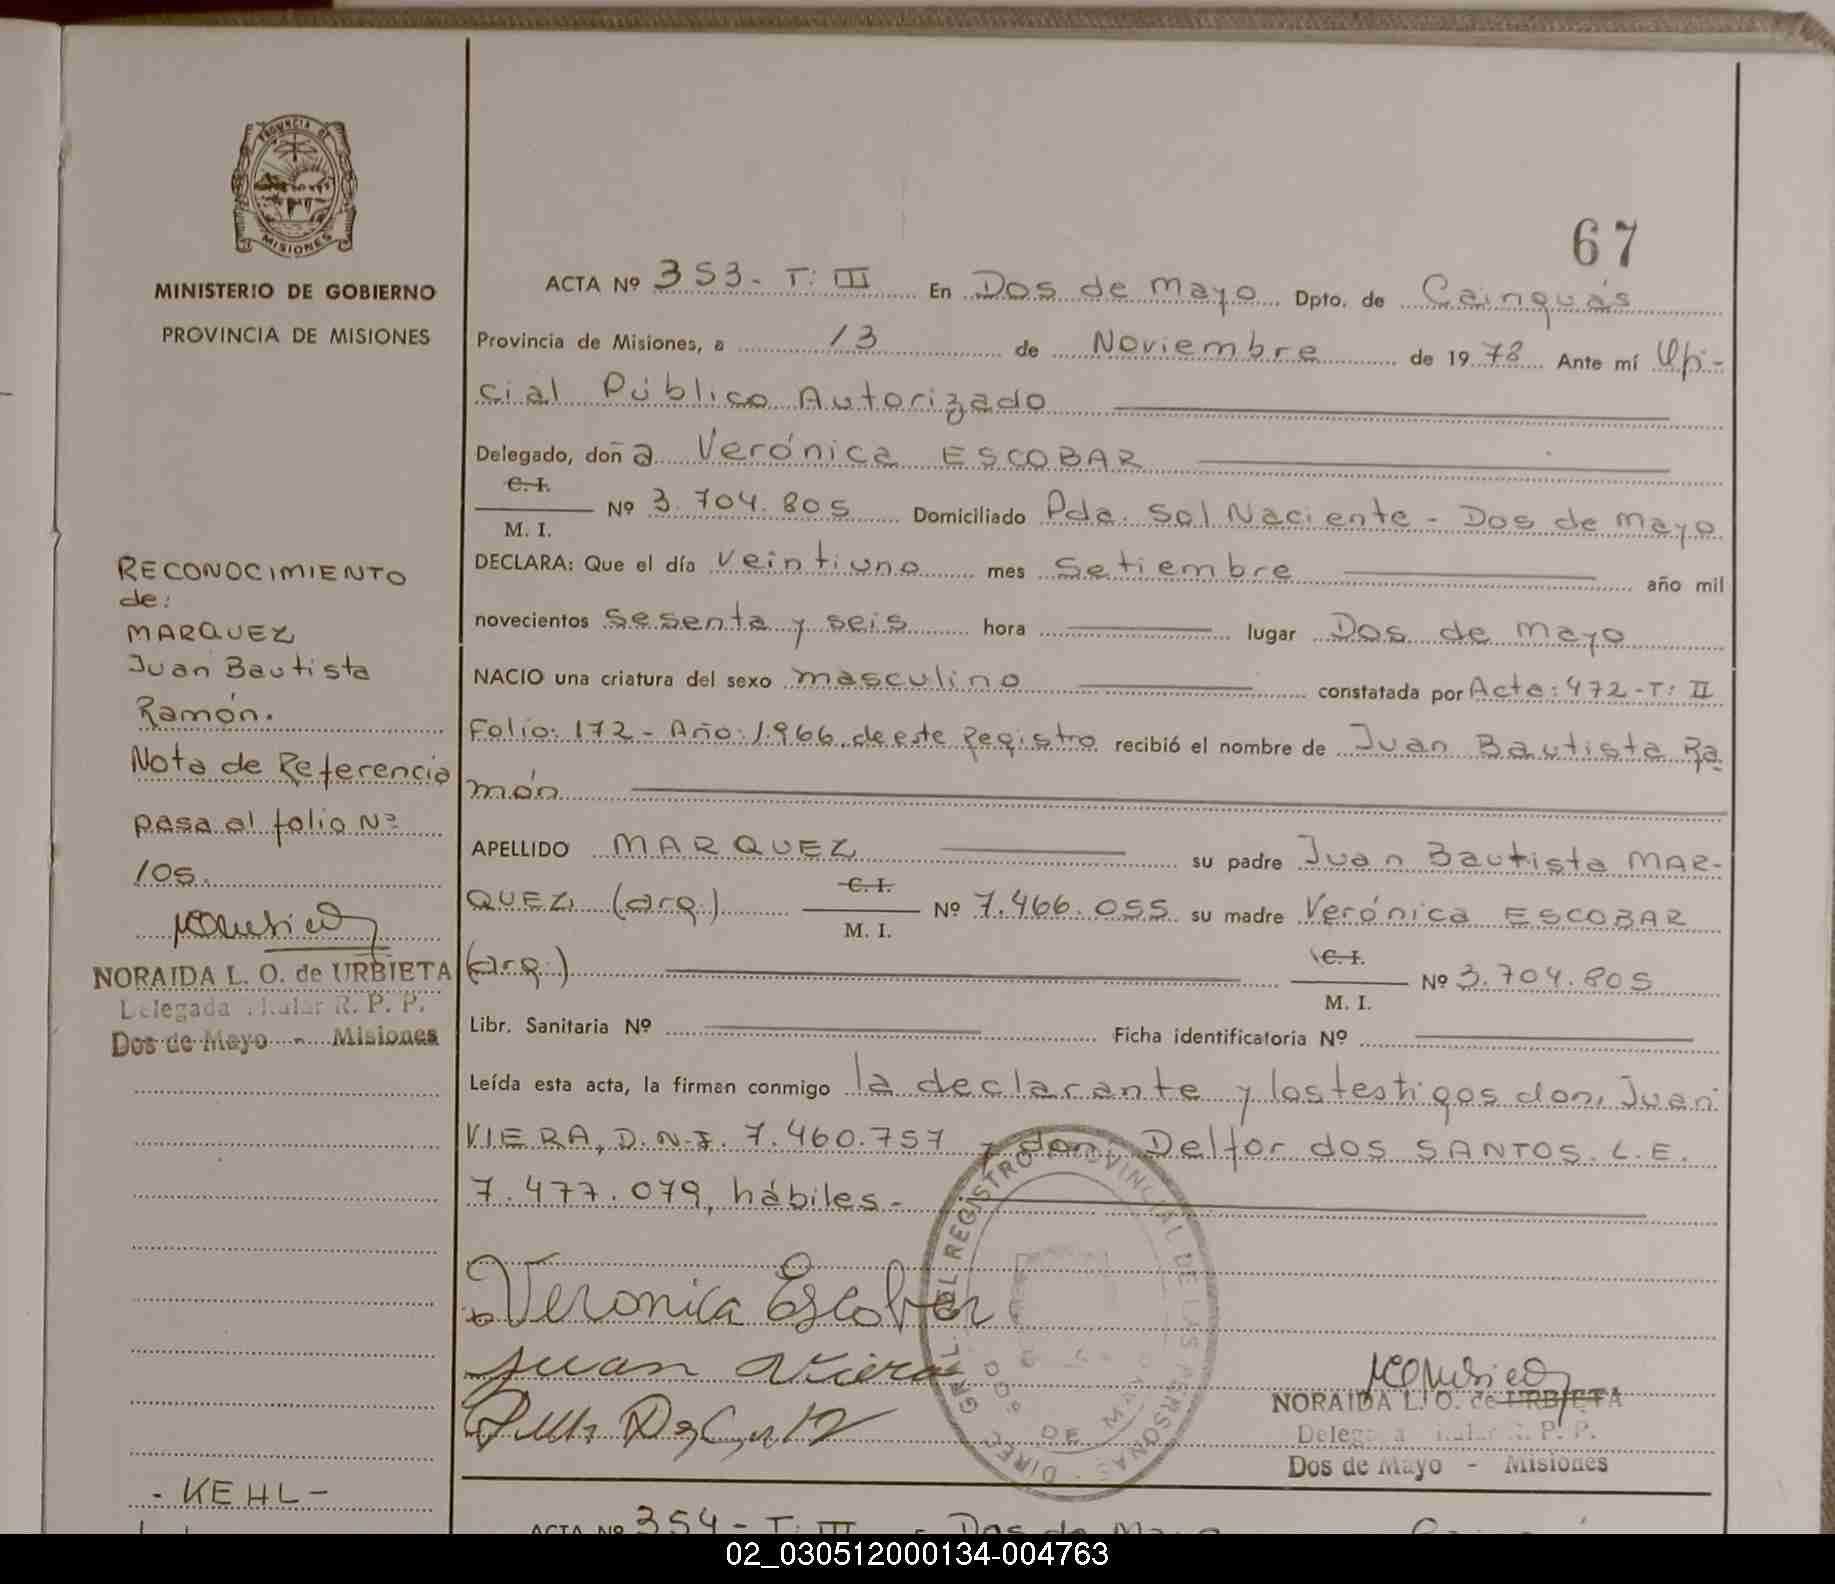 PROVINCIA DE
MISIONES
MINISTERIO DE GOBIERNO
PROVINCIA DE MISIONES
RECONOCIMIENTO
de:
MARQUEZ
Juan Bautista
Ramón.
Nota de Referencia
pasa al folio Nº
105.
NORAIDA L. O. de URBIETA
Delegada R. P. P.
Dos de Mayo - Misiones
- KEHL -
67
ACTA Nº 353- T: III En Dos de Mayo Dpto. de Cainguás
Provincia de Misiones, a 13 de Noviembre de 1978 Ante mí Ofi-
cial Público Autorizado
Delegado, doña Verónica ESCOBAR
C. I.
M. I. Nº 3.704.805 Domiciliado Pda. Sol Naciente - Dos de Mayo
DECLARA: Que el día veintiuno mes Setiembre año mil
novecientos sesenta y seis hora lugar Dos de Mayo
NACIO una criatura del sexo masculino constatada por Acta: 472-T: II
Folio: 172 - Año: 1.966, de este Registro recibió el nombre de Juan Bautista Ra-
món
APELLIDO MARQUEZ su padre Juan Bautista MAR-
QUEZ, (arg.) C. I. M. I. Nº 7.466.055 su madre Verónica ESCOBAR
(arg.) C. I. M. I. Nº 3.704.805
Libr. Sanitaria Nº Ficha identificatoria Nº
Leída esta acta, la firman conmigo la declarante y los testigos don, Juan
VIERA, D.N.I. 7.460.757 y don, Delfor dos SANTOS. L.E.
7.477.079, hábiles.-
Veronica Escobar
Juan Viera
DIREC. GRAL. DEL REGISTRO PROVINCIAL DE LAS PERSONAS
DOS DE MAYO
NORAIDA L. O. de URBIETA
R. P. P.
Dos de Mayo - Misiones
ACTA Nº 354 - T: III Dos de Mayo
02_030512000134-004763